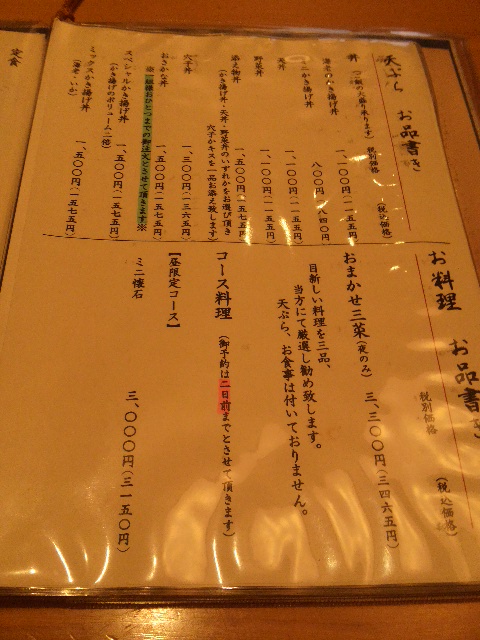 天ぷら お品書き
税別価格 (税込価格)
丼 (ご飯の大盛り承ります)
海老のかき揚げ丼 一、一〇〇円(一一五五円)
ミニかき揚げ丼 八〇〇円(八四〇円)
天丼 一、一〇〇円(一一五五円)
野菜丼 一、一〇〇円(一一五五円)
添え物丼 一、五〇〇円(一五七五円)
(かき揚げ丼・天丼・野菜丼のいずれかをお選び頂き
穴子かキスを一品お添え致します)
穴子丼 一、三〇〇円(一三六五円)
おさかな丼 一、五〇〇円(一五七五円)
※一組様おひとつまでの御注文とさせて頂きます※
スペシャルかき揚げ丼 一、五〇〇円(一五七五円)
(かき揚げのボリューム二倍)
ミックスかき揚げ丼 一、五〇〇円(一五七五円)
(海老・いか)
定食
お料理 お品書き
税別価格 (税込価格)
おまかせ三菜(夜のみ) 三、三〇〇円(三四六五円)
目新しい料理を三品、
当方にて厳選し勧め致します。
天ぷら、お食事は付いておりません。
コース料理 (御予約は二日前までとさせて頂きます)
【昼限定コース】
ミニ懐石 三、〇〇〇円(三一五〇円)